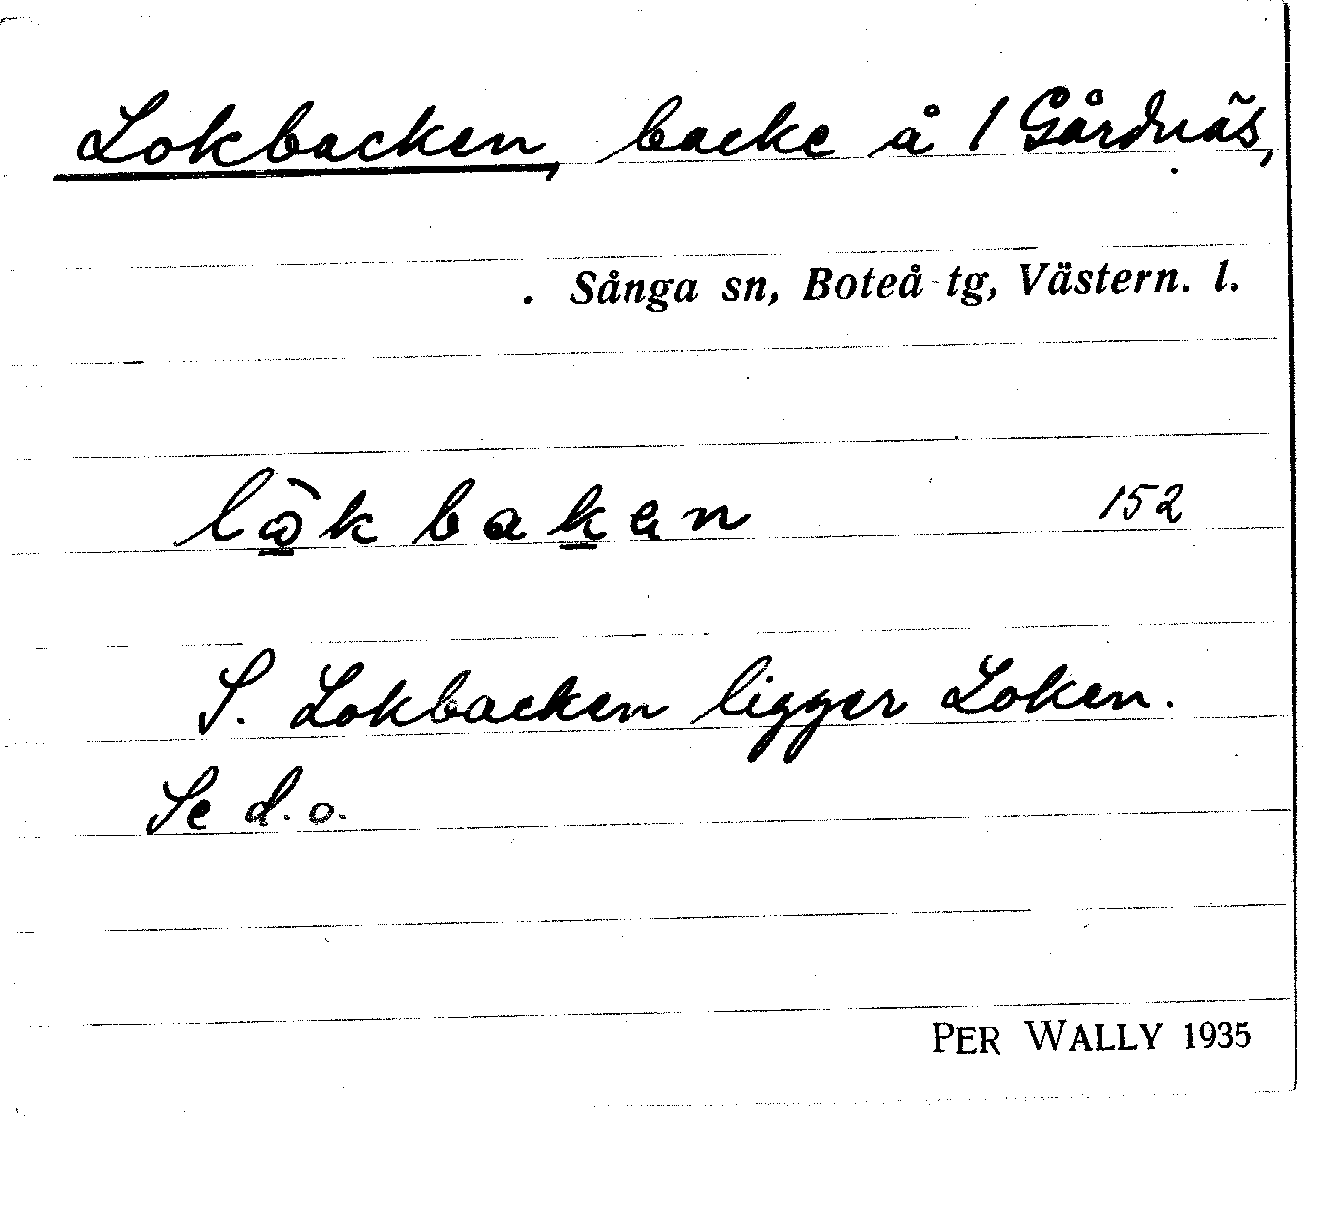 Lokbacken, backe å 1 Gårdnäs,
. Sånga sn, Boteå tg, Västern. l.
152
S. Lokbacken ligger Loken.
Se d.o.
PER WALLY 1935